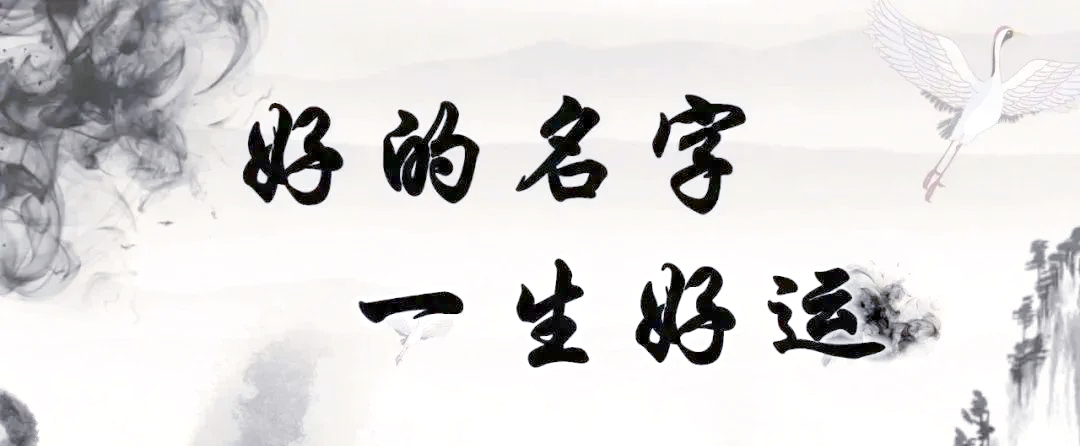 好的名字
一生好运